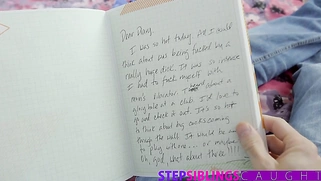 Dear Diary,
I was so hot today. All I could
think about was being fucked by a
really huge dick. It was so intense
I had to fuck myself with
mom's vibrator. I heard about a
glory hole at a club. I'd love to
go and check it out. It's so hot
to think about big cocks coming
through the wall. It would be
to play with one... or
Oh, god, what about three!!!
STEPSIBLINGSCAUGHT